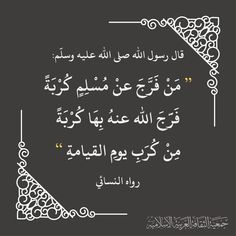 قال رسول الله صلى الله عليه وسلّم:
” مَنْ فَرَّجَ عنْ مُسْلِمٍ كُرْبَةً
فَرَجَ الله عنهُ بِهَا كُرْبَةً
مِنْ كُرَبِ يوم القيامةِ “
رواه النسائي
جمعية الثقافة العربية الإسلامية